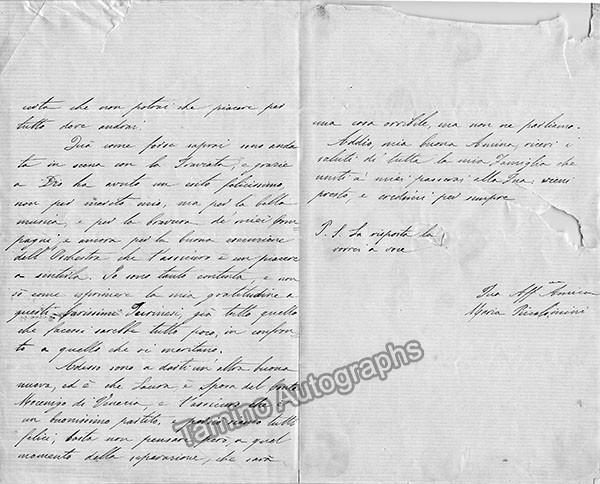 certa che non potrai che piacere per
tutto dove andrai.
Quà come forse saprai sono anda
ta in scena con la Traviata, e grazie
a Dio ha avuto un esito felicissimo,
non per merito mio, ma per la bella
musica, e per la bravura de' miei Com
pagni, e ancora per la buona esecuzione
dell'Orchestra che t'assicuro è un piacere
a sentirla. Io sono tanto contenta, e non
sò come esprimere la mia gratitudine a
questi Torinesi, già tutto quello
che facessi sarebbe tutto poco, in confron
to a quello che si meritano.
Adesso sono a darti un'altra buona
nuova, ed è che Laura è Sposa del Conte
di Venezia, e t'assicuro che è
un buonissimo partito, e siamo tutti
felici, basta non pensare però, a quel
momento della separazione, che sarà
una cosa orribile, ma non ne parliamo.
Addio, mia buona Amica, ricevi i
saluti di tutta la mia Famiglia che
uniti a' miei passerai alla Tua; scrivi
presto, e credimi per sempre
P. S. La risposta la
vorrei a voce
Tua Aff.ma Amica
Maria Piccolomini
Tamino Autographs